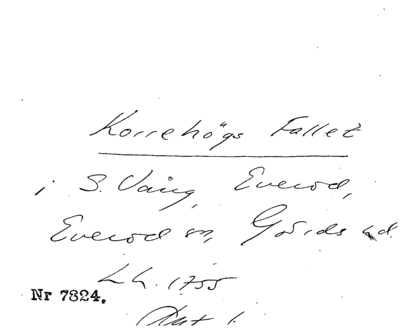 Korrehögs Fallet
i S. Vång, Everöd,
Everöd sn, Gärds hd.
LH. 1755
Nr 7824.
Akt 1.